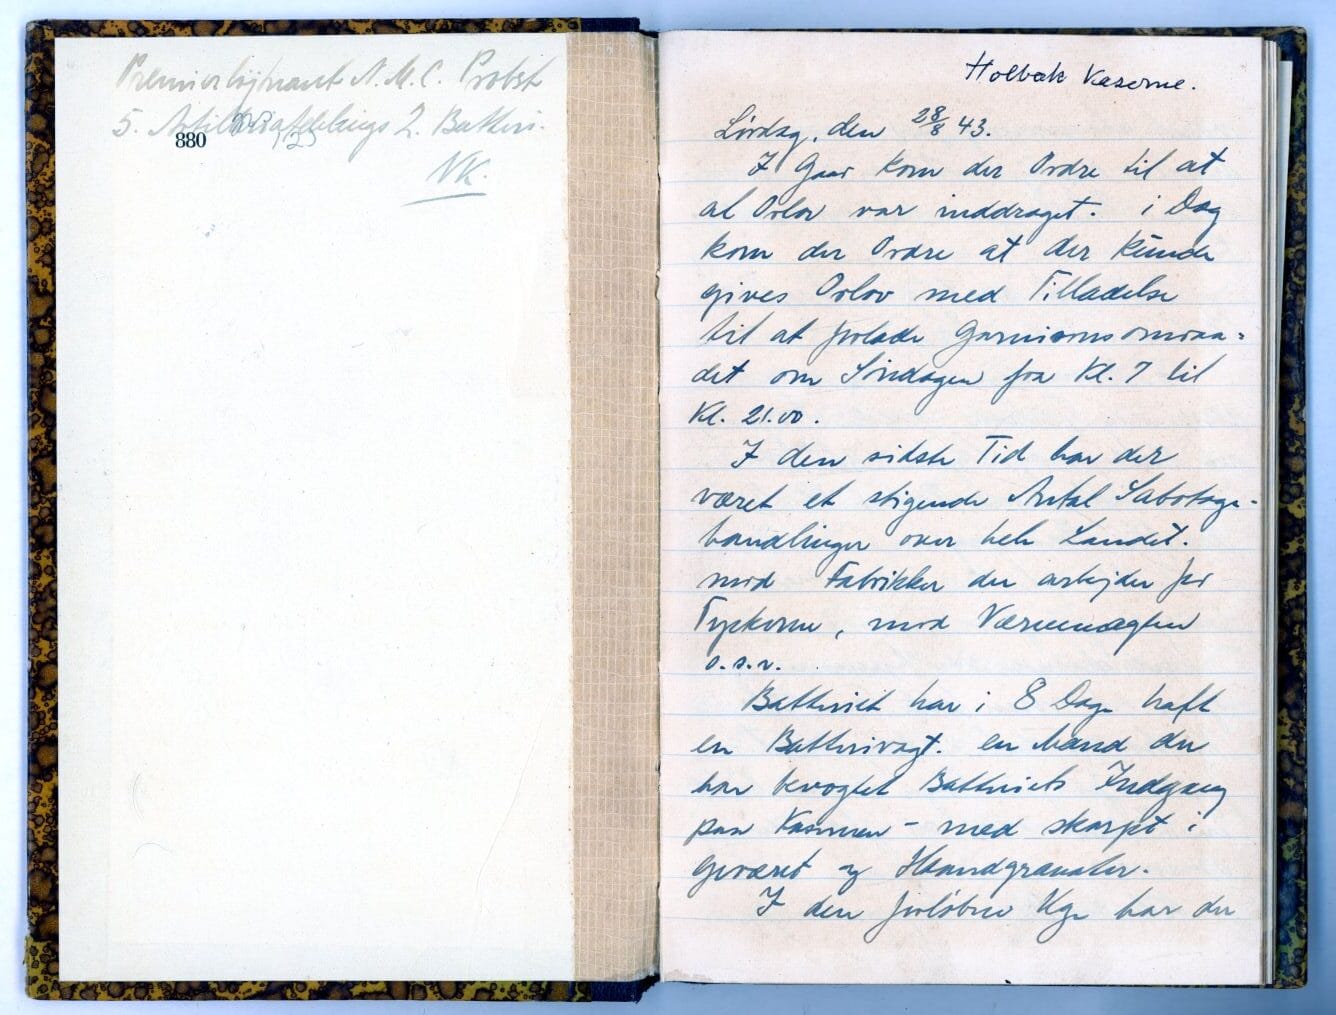 Premierløjtnant N.M.C. Probst
5. Artilleriafdelings 2. Batteri.
880
NK.
Holbæk Kaserne.
Lørdag, den 28/8 43.
I Gaar kom der Ordre til at
al Orlov var inddraget. i Dag
kom der Ordre at der kunde
gives Orlov med Tilladelse
til at forlade Garnisonsomraa=
det om Søndagen fra Kl. 7 til
Kl. 21.00.
I den sidste Tid har der
været et stigende Antal Sabotage-
handlinger over hele Landet.
mod Fabrikker der arbejder for
Tyskerne, mod Værnemagten
o.s.v.
Batteriet har i 8 Dage haft
en Batterivagt. en Mand der
har bevogtet Batteriets Indgang
paa Kasernen - med skarpt i
Geværet og Haandgranater.
I den forløbne Uge har der